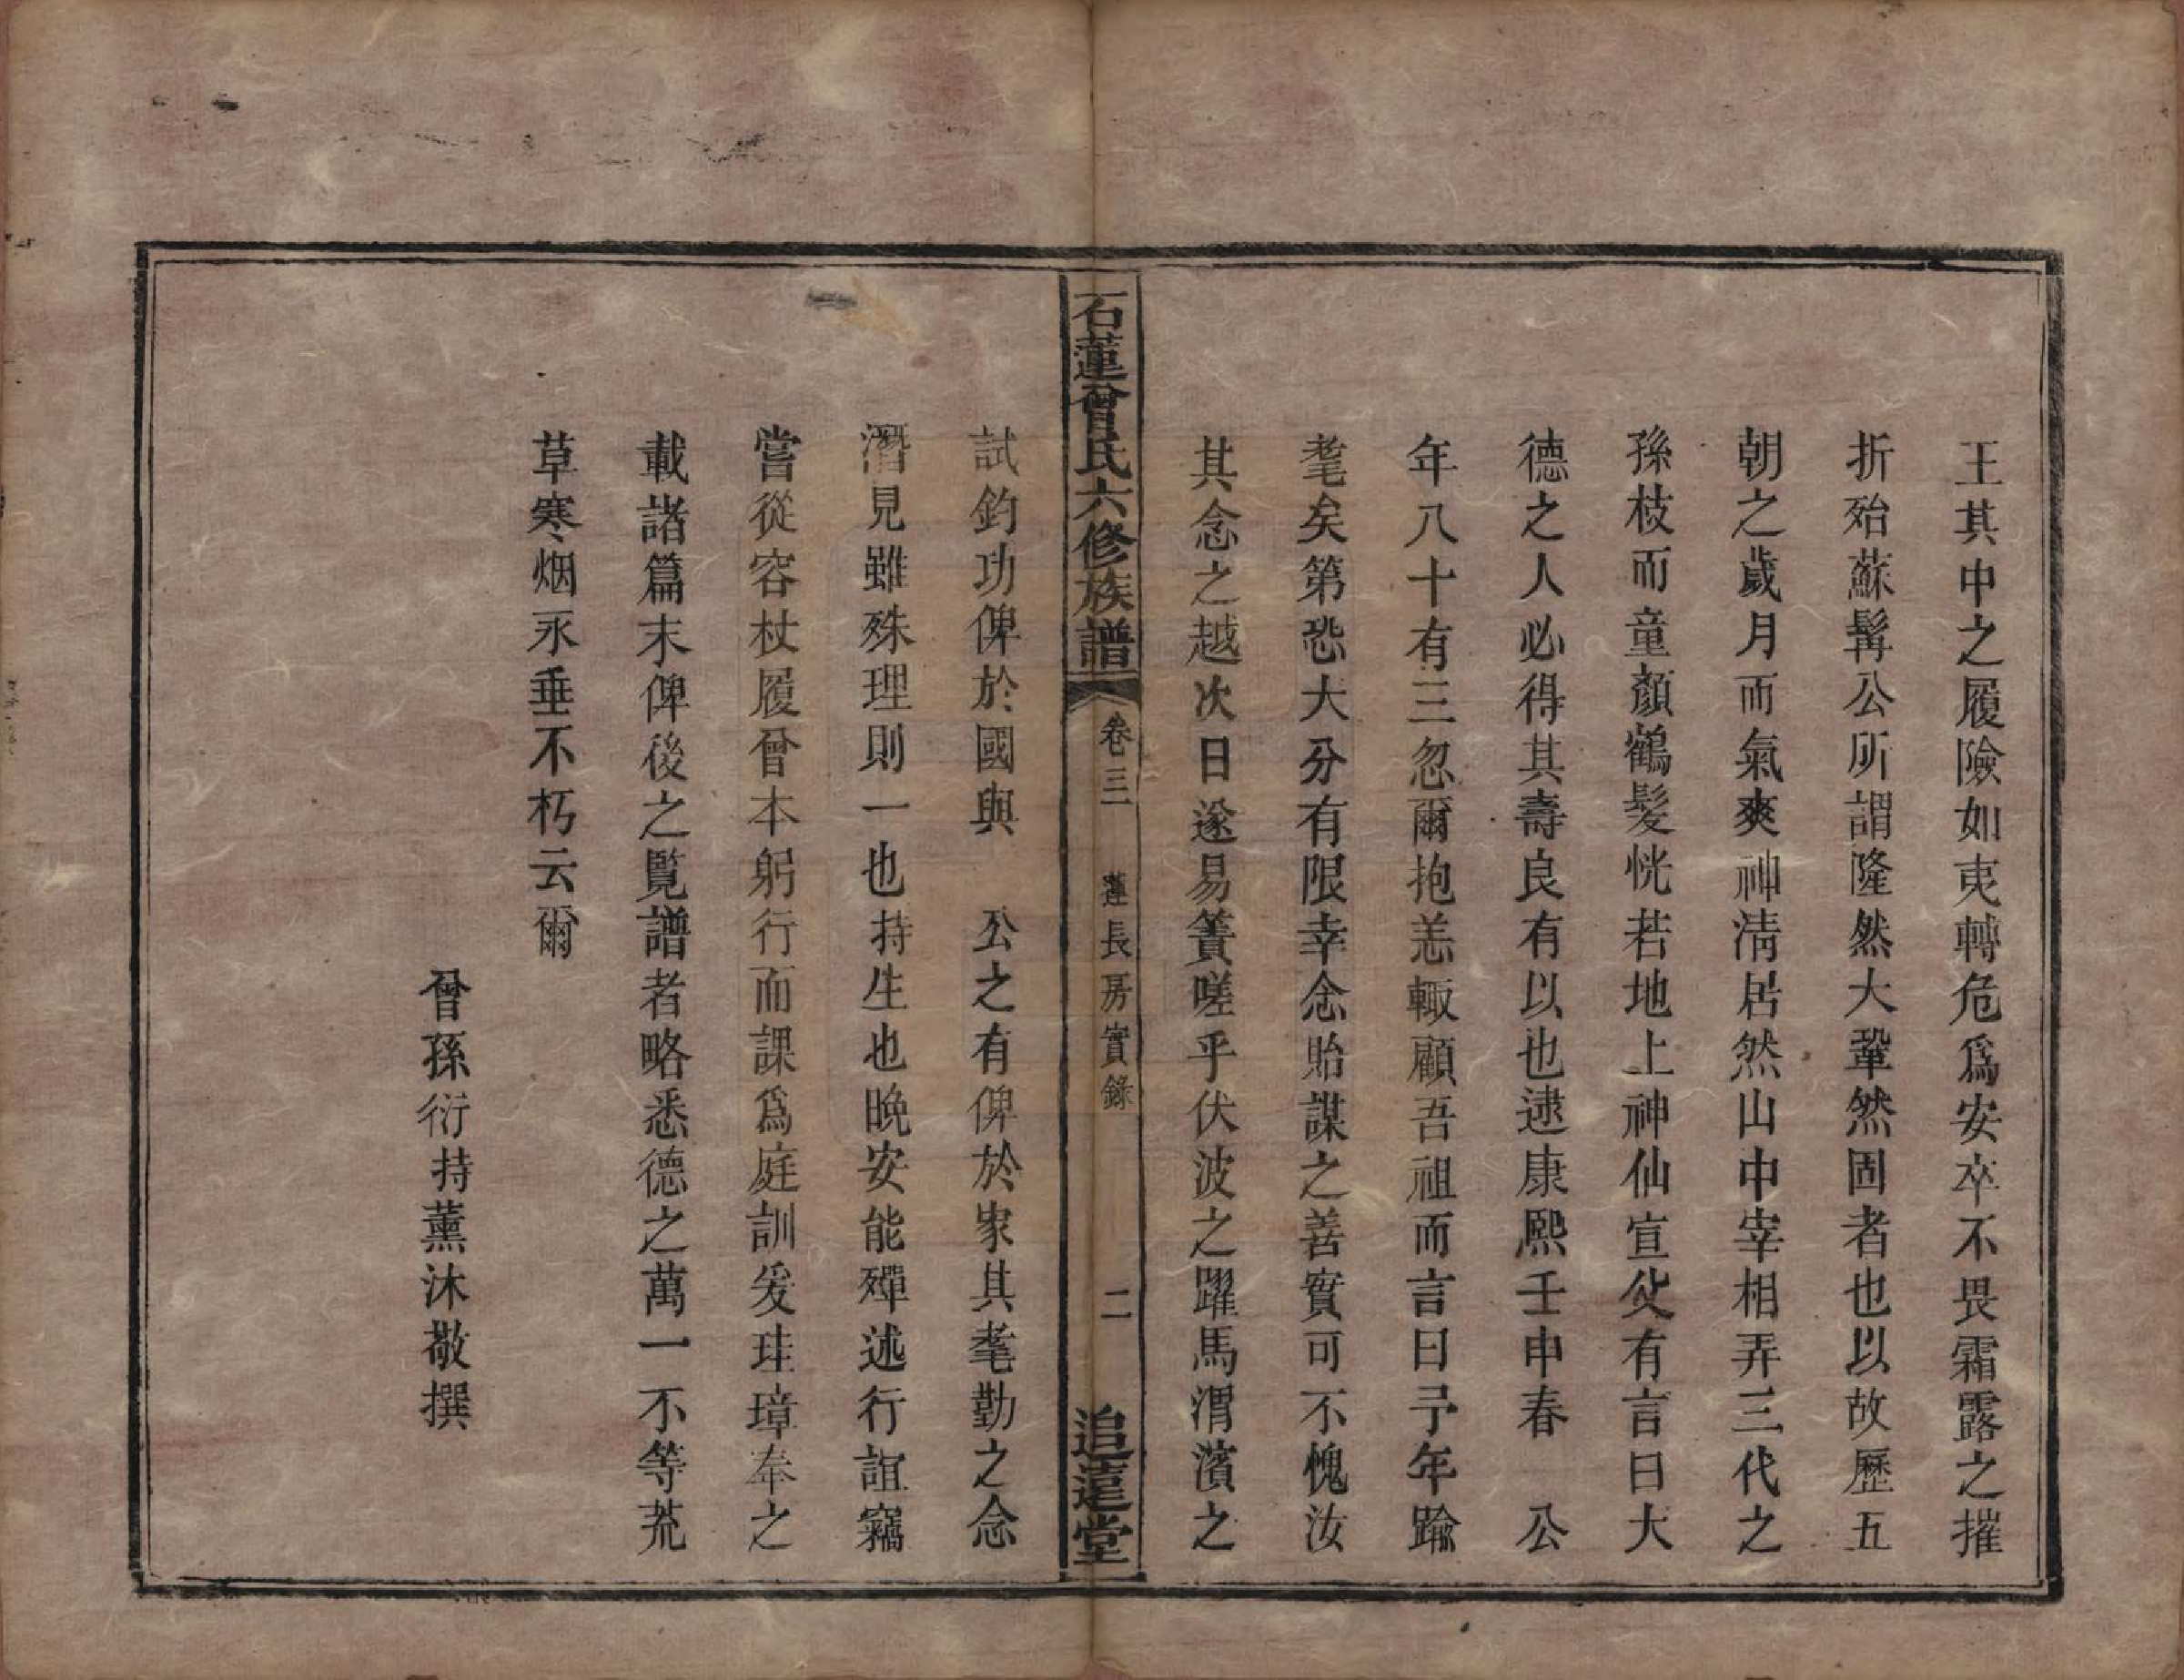 王其中之履險如夷轉危爲安卒不畏霜露之摧
折殆蘇髯公所謂隆然大鞏然固者也以故歷五
朝之歲月而氣爽神清居然山中宰相弄三代之
孫枝而童顏鶴髮恍若地上神仙宣父有言曰大
德之人必得其壽良有以也逮康熙壬申春　公
年八十有三忽爾抱恙輙顧吾祖而言曰予年踰
耄矣第恐大分有限幸念貽謀之善實可不愧汝
其念之越次日遂易簀嗟乎伏波之躍馬渭濱之
石蓮曾氏六修族譜　卷三　蓮長房實錄　二　追遠堂
試釣功俾於國與　公之有俾於家其耄勤之念
潛見雖殊理則一也持生也晚安能殫述行誼竊
嘗從容杖履曾本躬行而課爲庭訓爰珪璋奉之
載諸篇末俾後之覽譜者略悉德之萬一不等荒
草寒烟永垂不朽云爾
曾孫衍持薰沐敬撰